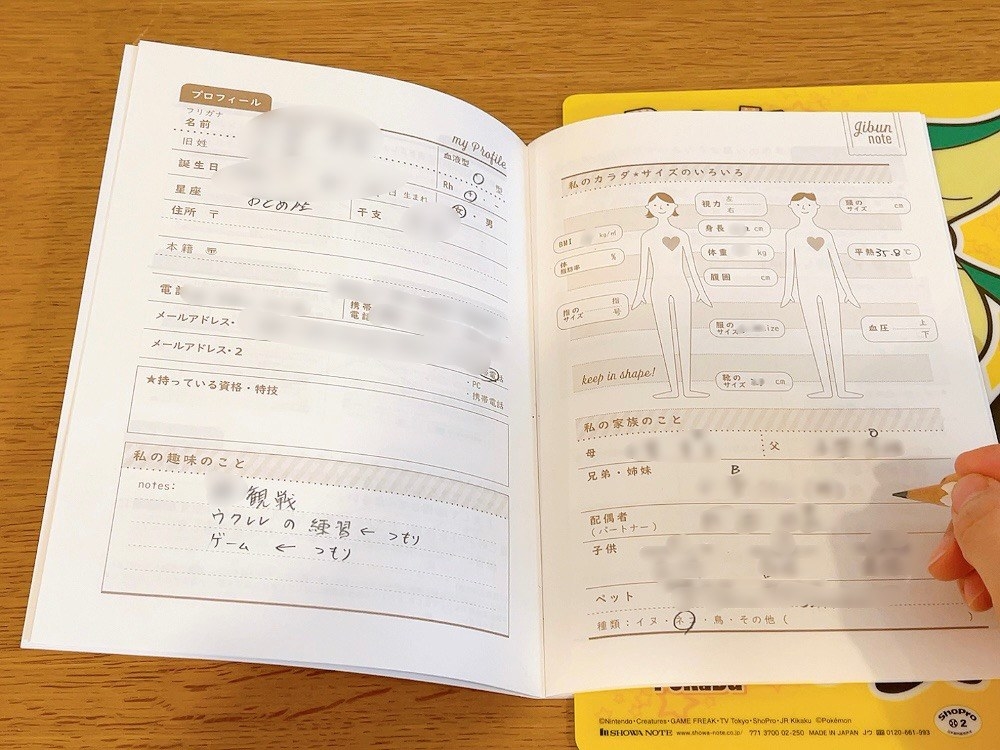 プロフィール
my Profile
フリガナ
名前
旧姓
血液型 型
誕生日
Rh +
日 生まれ
星座 おとめ座
干支
女・男
住所 〒
本籍 〒
電話
携帯電話
メールアドレス・
メールアドレス・2
・PC
・携帯電話
★持っている資格・特技
私の趣味のこと
notes:
観戦
ウクレレ の 練習 ← つもり
ゲーム ← つもり
gibun note
私のカラダ★サイズのいろいろ
視力 左 右
頭のサイズ cm
身長 cm
BMI kg/㎡
体重 kg
平熱 35.8℃
体脂肪率 %
腹囲 cm
指のサイズ 指 号
服のサイズ size
血圧 上 下
keep in shape!
靴のサイズ cm
私の家族のこと
母
父 O
兄弟・姉妹 B
配偶者
(パートナー)
子供
ペット
種類:イヌ・ネコ・鳥・その他 ( )
©Nintendo・Creatures・GAME FREAK・TV Tokyo・ShoPro・JR Kikaku ©Pokémon
SHOWA NOTE www.showa-note.co.jp/ 771 3700 02-250 MADE IN JAPAN 0120-661-993
ShoPro
2